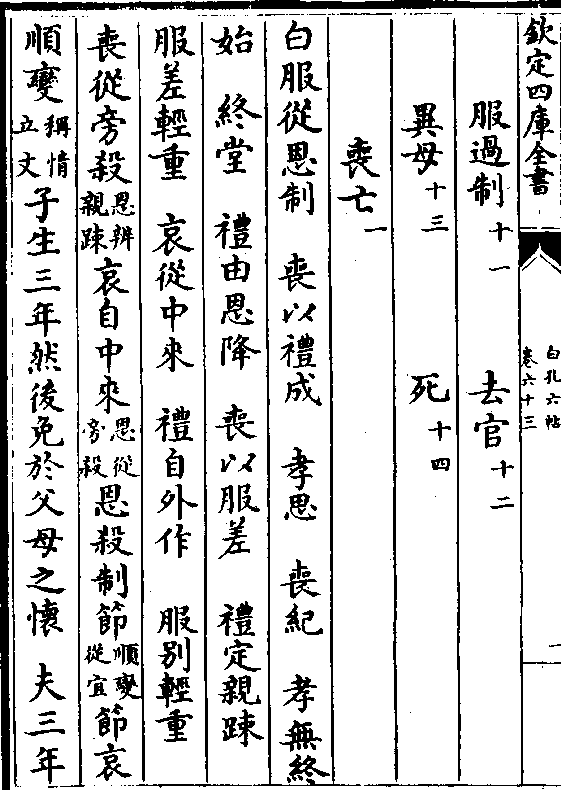 欽定四庫全書
白孔六帖
卷六十三
服過制十一　去官十二
異母十三　死十四
喪亡一
白服從恩制　喪以禮成　孝思　喪紀　孝無終
始　終堂　禮由恩降　喪以服差　禮定親踈
服差輕重　哀從中來　禮自外作　服別輕重
喪從旁殺恩辨親踈哀自中來恩從旁殺恩殺制節順變從宜節哀
順變稱情立文子生三年然後免於父母之懷　夫三年